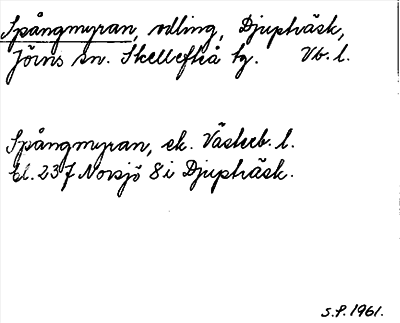 Spångmyran, odling, Djupträsk,
Jörns sn. Skellefteå tg. Vb. l.
Spångmyran, ek. Västerb. l.
bl. 237 Norsjö 8 i Djupträsk.
S.P. 1961.